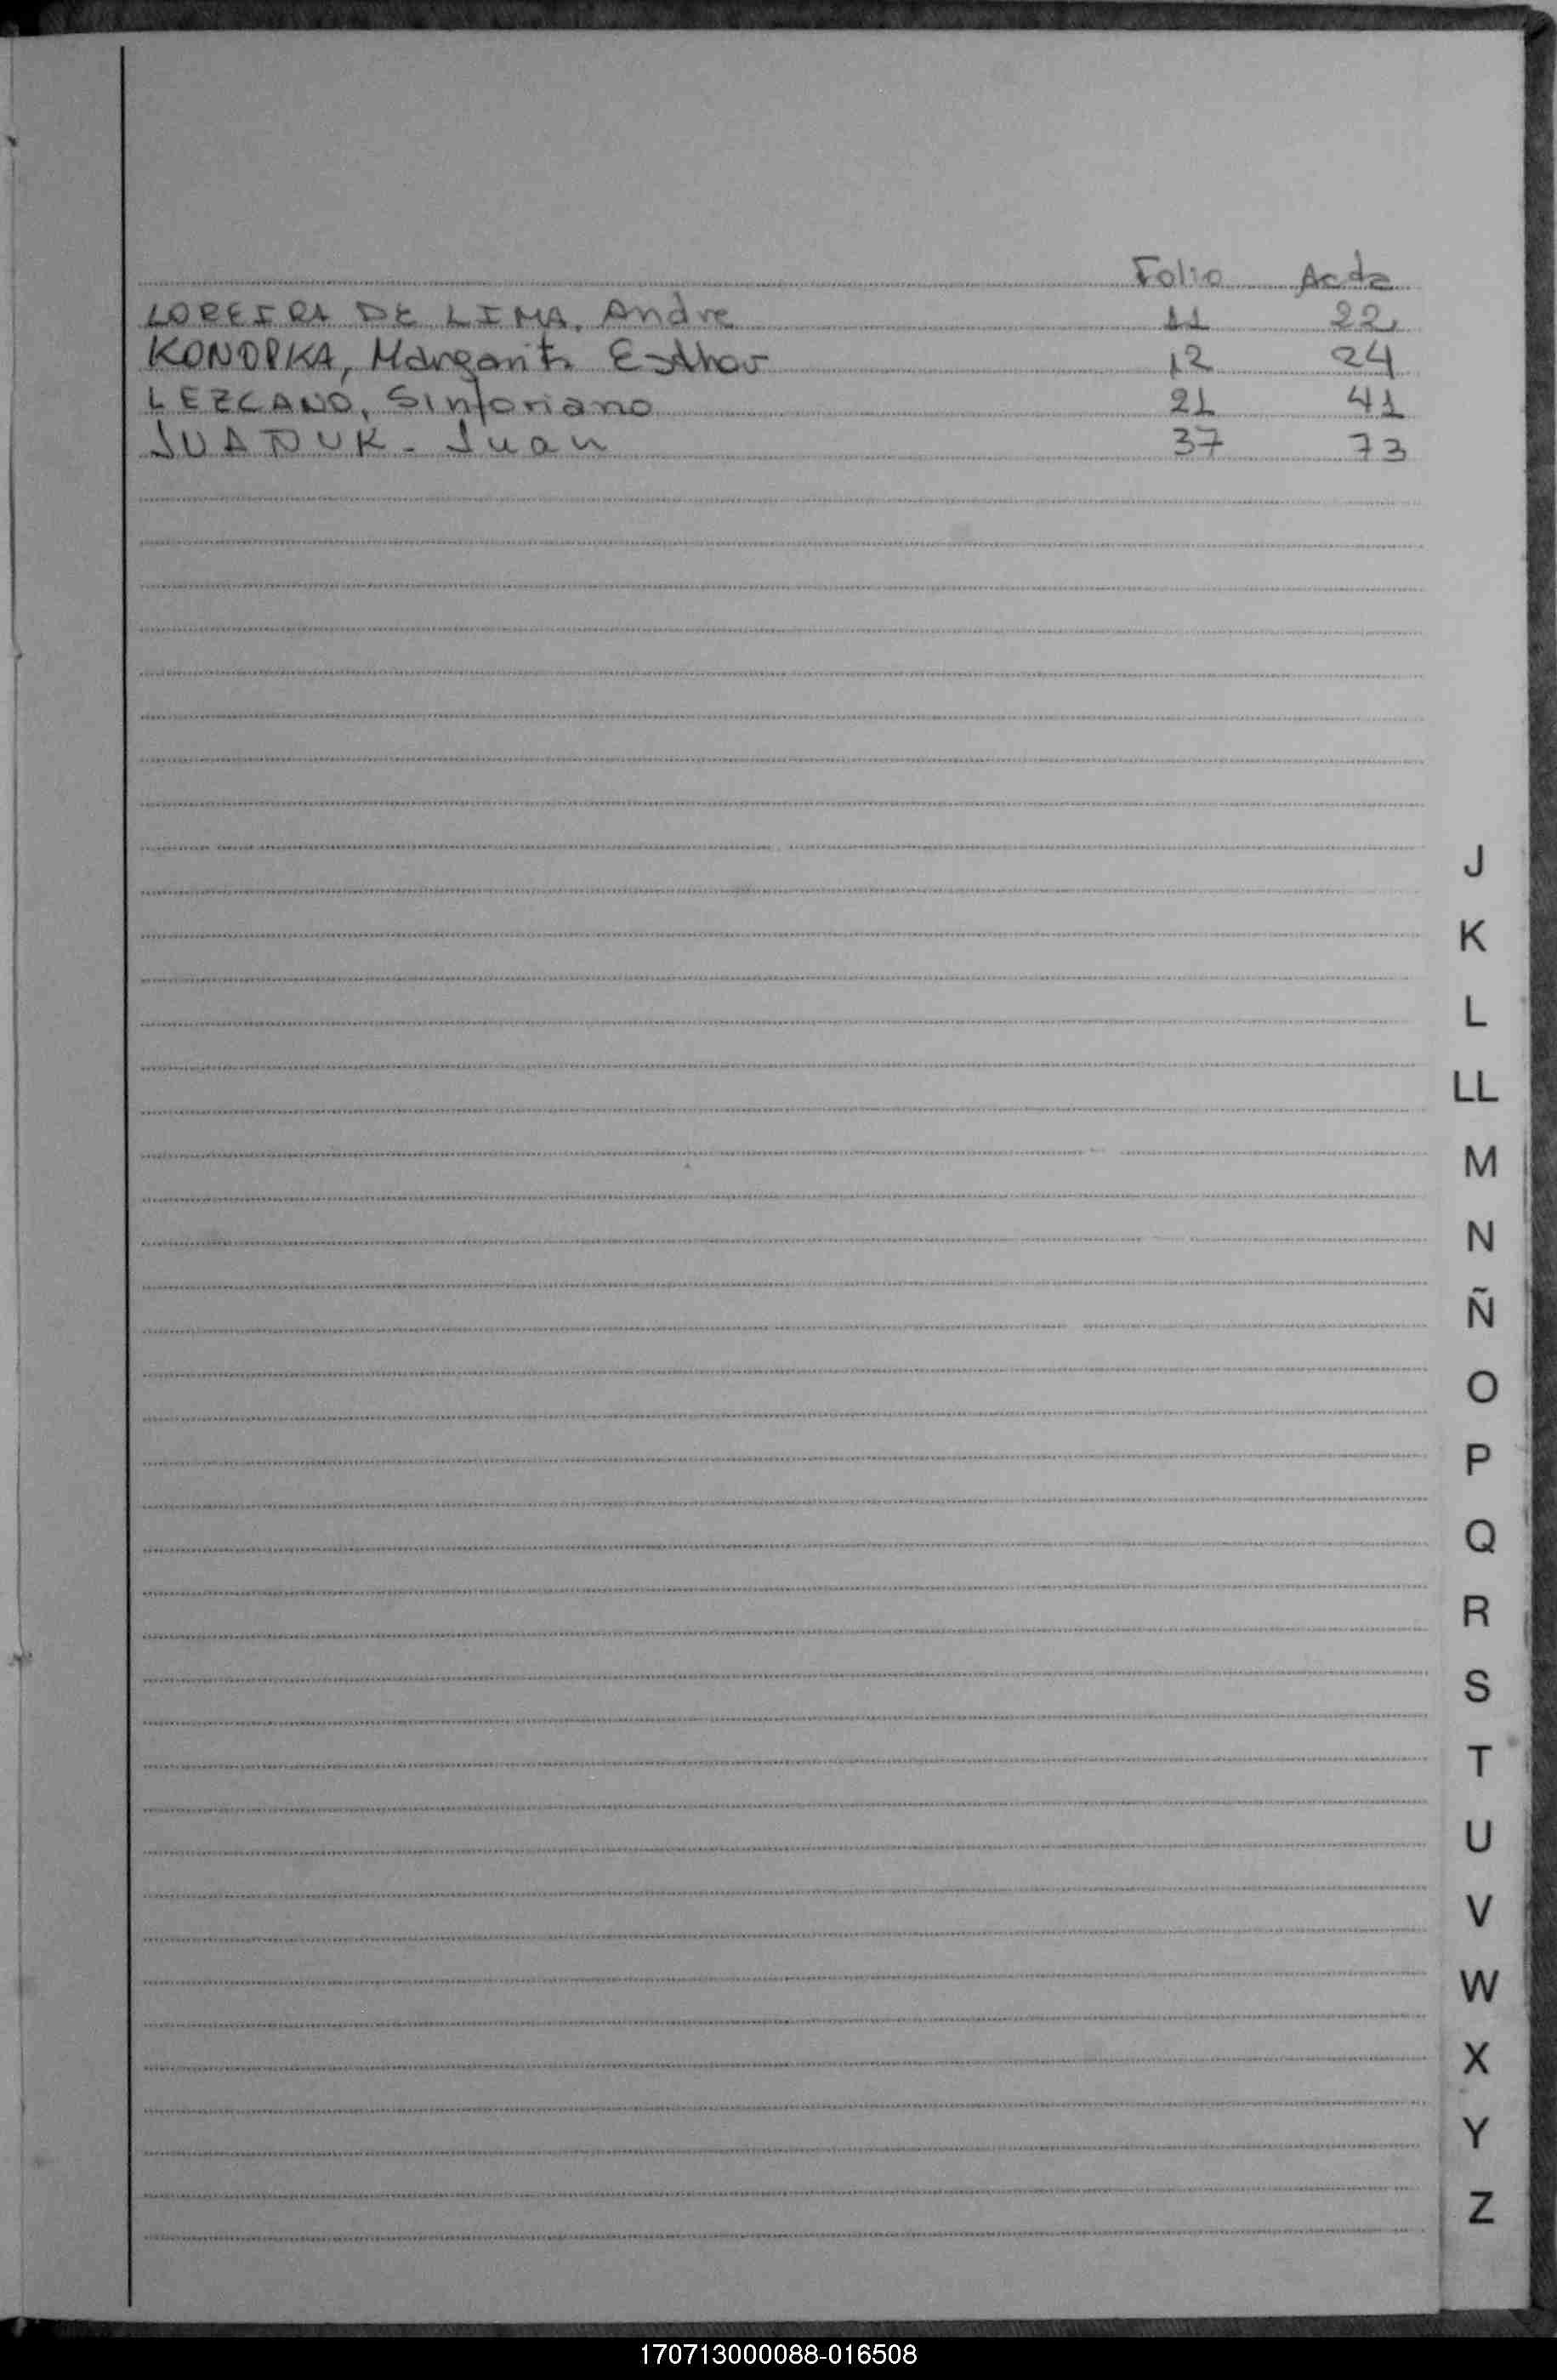 Folio Acta
LOREIRA DE LIMA, Andre 11 22
KONOPKA, Margarita Esther 12 24
LEZCANO, Sinforiano 21 41
JUANUK - Juan 37 73
J
K
L
LL
M
N
Ñ
O
P
Q
R
S
T
U
V
W
X
Y
Z
170713000088-016508